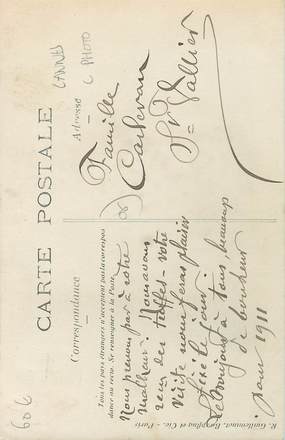 CARTE POSTALE
Correspondance
Tous les pays étrangers n'acceptent pas la correspon-
dance au recto. Se renseigner à la Poste
Adresse
CANNES
C PHOTO
Famille
St Vallier
(06)
Nous prenons part à votre
malheur. Nous avons
reçu des truffes. Votre
visite nous fera plaisir
fixé le jour
Le bonjour à tous, beaucoup
de bonheur
pour 1911
606
R. Guilleminot, Boespflug et Cie. - Paris